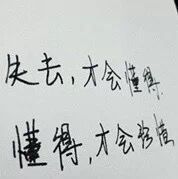 失去，才会懂得.
懂得，才会珍惜